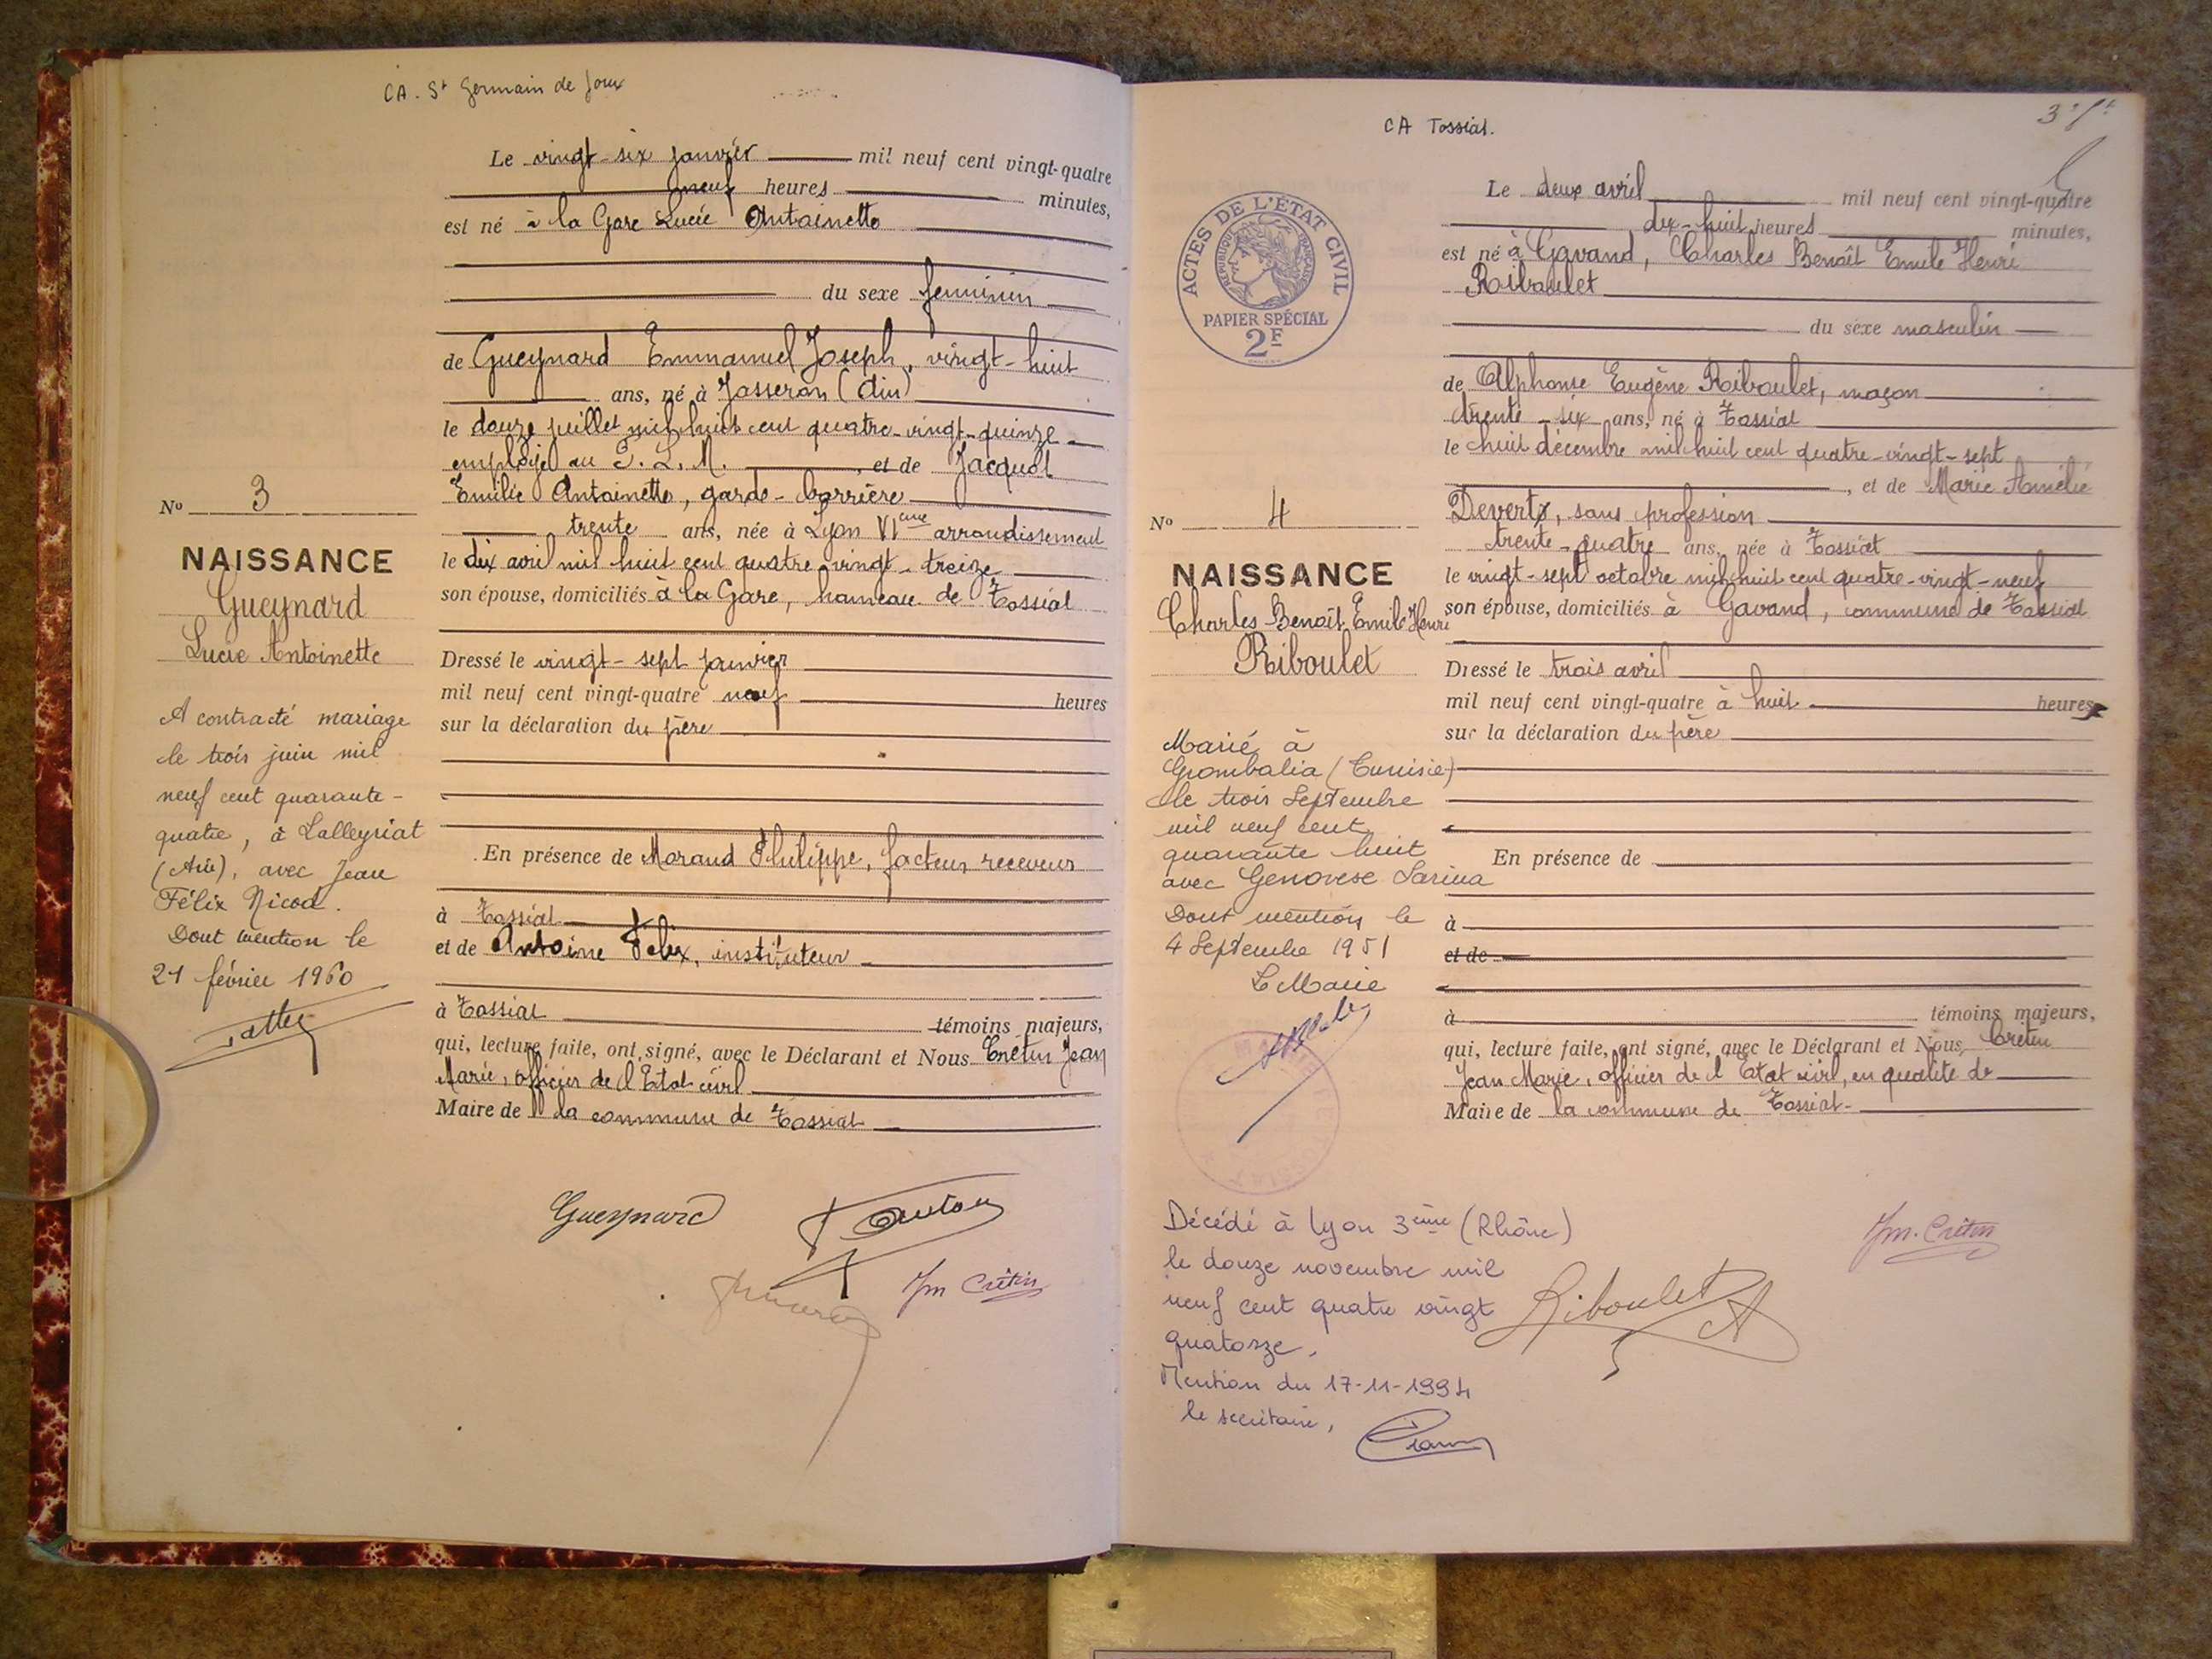 CA. St Germain de Joux
Le vingt-six janvier mil neuf cent vingt-quatre
neuf heures minutes,
est né à la Gare Lucie Antoinette
du sexe féminin
de Gueynard Emmanuel Joseph, vingt-huit
ans, né à Jasseron (Ain)
le douze juillet mil huit cent quatre-vingt-quinze
employé au P. L. M. , et de Jacquot
Emilie Antoinette, garde-barrière
trente ans, née à Lyon VIème arrondissement
le dix avril mil huit cent quatre-vingt-treize
son épouse, domiciliés à la Gare, hameau de Tossiat
Dressé le vingt-sept janvier
mil neuf cent vingt-quatre neuf heures
sur la déclaration du père
En présence de Morand Philippe, facteur receveur
à Tossiat
et de Antoine Felix, instituteur
à Tossiat témoins majeurs,
qui, lecture faite, ont signé, avec le Déclarant et Nous Crétin Jean
Marie, officier de l'Etat civil
Maire de la commune de Tossiat
No 3
NAISSANCE
Gueynard
Lucie Antoinette
A contracté mariage
le trois juin mil
neuf cent quarante-
quatre, à Lalleyriat
(Ain), avec Jean
Félix Nicod.
Dont mention le
21 février 1960
Gueynard
Jm Crétin
CA Tossiat.
ACTES DE L'ÉTAT CIVIL
RÉPUBLIQUE FRANÇAISE
PAPIER SPÉCIAL
2F
Le deux avril mil neuf cent vingt-quatre
dix-huit heures minutes,
est né à Gavand, Charles Benoît Emile Henri
Riboulet
du sexe masculin
de Alphonse Eugène Riboulet, maçon
trente-six ans, né à Tossiat
le huit décembre mil huit cent quatre-vingt-sept
, et de Marie Amélie
Devert, sans profession
trente-quatre ans, née à Tossiat
le vingt-sept octobre mil huit cent quatre-vingt-neuf
son épouse, domiciliés à Gavand, commune de Tossiat
Dressé le trois avril
mil neuf cent vingt-quatre à huit heures
sur la déclaration du père
En présence de
à
et de
à témoins majeurs,
qui, lecture faite, ont signé, avec le Déclarant et Nous, Crétin
Jean Marie, officier de l'Etat civil, en qualité de
Maire de la commune de Tossiat
No 4
NAISSANCE
Charles Benoît Emile Henri
Riboulet
Marié à
Grombalia (Tunisie)
le trois Septembre
mil neuf cent
quarante huit
avec Genovese Sarina
Dont mention le
4 Septembre 1951
Le Maire
Décédé à Lyon 3ème (Rhône)
le douze novembre mil
neuf cent quatre vingt
quatorze.
Mention du 17-11-1994
le secrétaire,
Riboulet A
Jm. Crétin